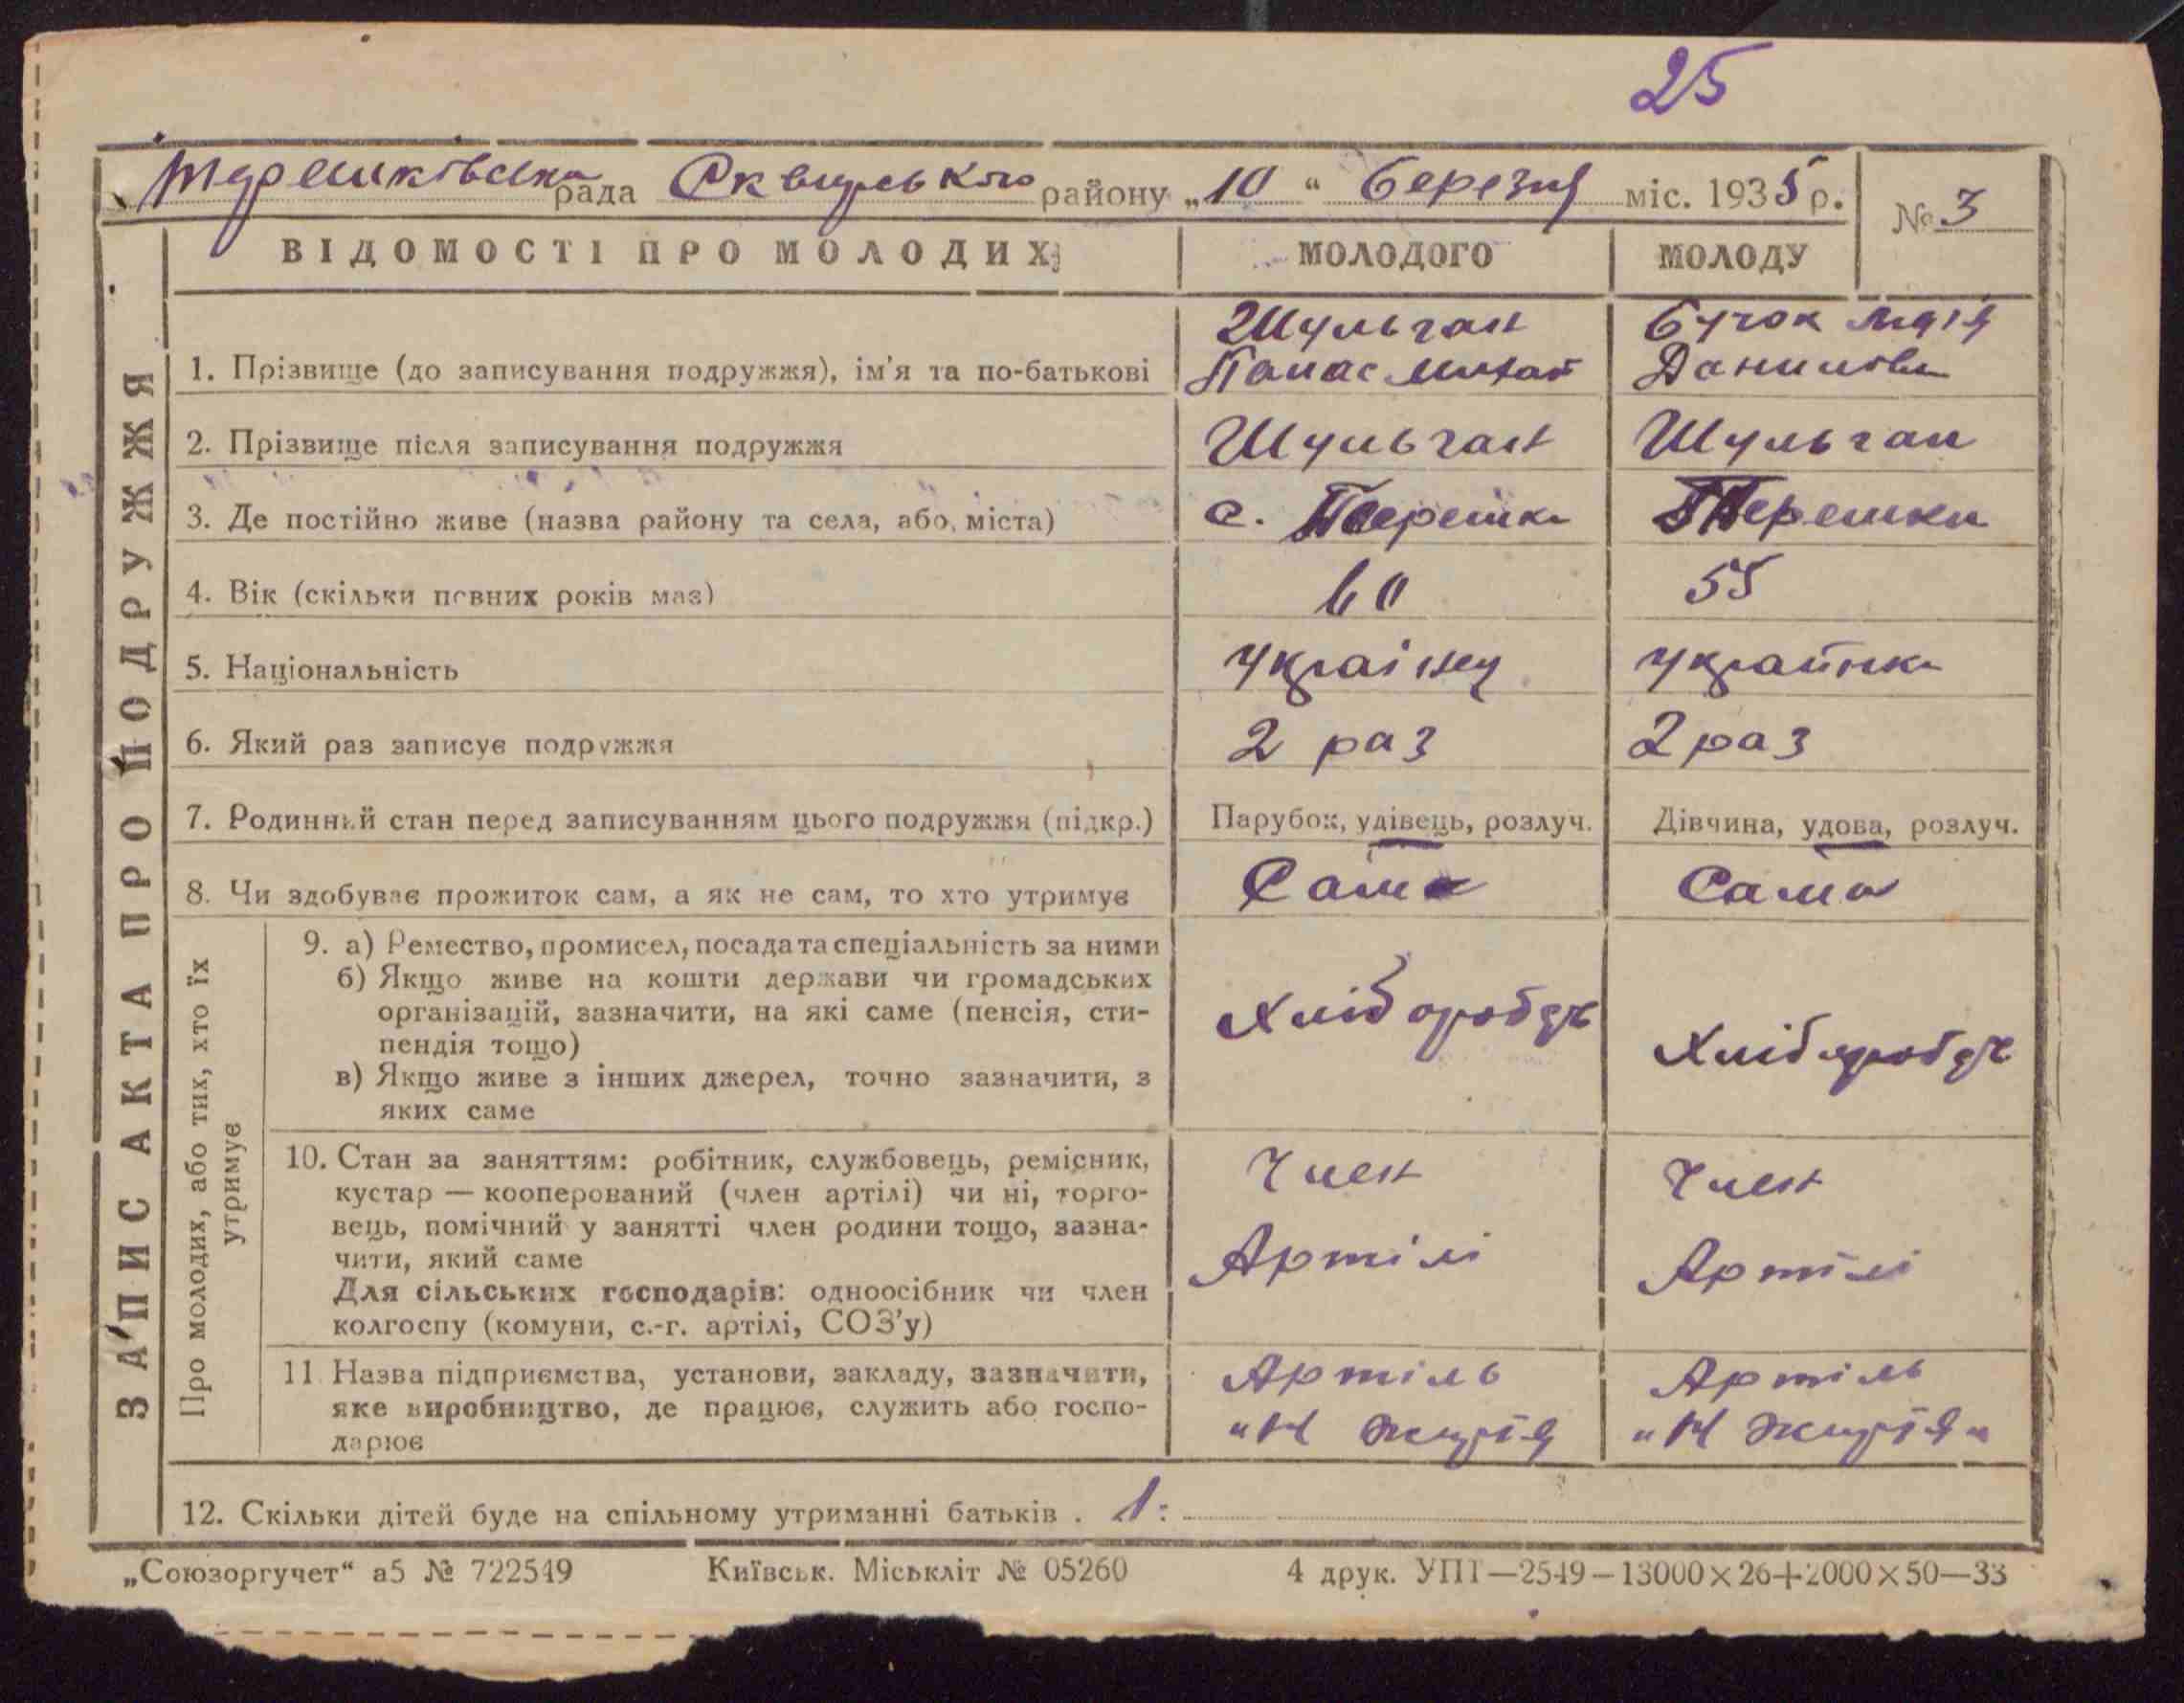 25
Терешківська рада Сквирського району „10“ березня міс. 1935 р.
№ 3
ВІДОМОСТІ ПРО МОЛОДИХ МОЛОДОГО МОЛОДУ
ЗАПИС АКТА ПРО ПОДРУЖЖЯ
Шульган
Панас Михай
Данилівн
1. Прізвище (до записування подружжя), ім'я та по-батькові
2. Прізвище після записування подружжя Шульган Шульган
3. Де постійно живе (назва району та села, або міста) с. Терешки Терешки
4. Вік (скільки повних років має) 60 55
5. Національність українец українка
6. Який раз записує подружжя 2 раз 2 раз
7. Родинний стан перед записуванням цього подружжя (підкр.) Парубок, удівець, розлуч. Дівчина, удова, розлуч.
8. Чи здобуває прожиток сам, а як не сам, то хто утримує Сам Сама
Про молодих, або тих, хто їх утримує
9. а) Ремество, промисел, посада та спеціальність за ними
б) Якщо живе на кошти держави чи громадських
організацій, зазначити, на які саме (пенсія, сти-
пендія тощо)
в) Якщо живе з інших джерел, точно зазначити, з
яких саме
Хліборобст Хліборобст
10. Стан за заняттям: робітник, службовець, ремісник,
кустар — кооперований (член артілі) чи ні, торго-
вець, помічний у занятті член родини тощо, зазна-
чити, який саме
Для сільських господарів: одноосібник чи член
колгоспу (комуни, с.-г. артілі, СОЗ'у)
Член Член
Артілі Артілі
11 Назва підприємства, установи, закладу, зазначити,
яке виробництво, де працює, служить або госпо-
дарює
Артіль Артіль
„Н життя „Н життя“
12. Скільки дітей буде на спільному утриманні батьків . 1:
„Союзоргучет“ а5 № 722549 Київськ. Міськліт № 05260 4 друк. УПТ—2549—13000×26+2000×50—33